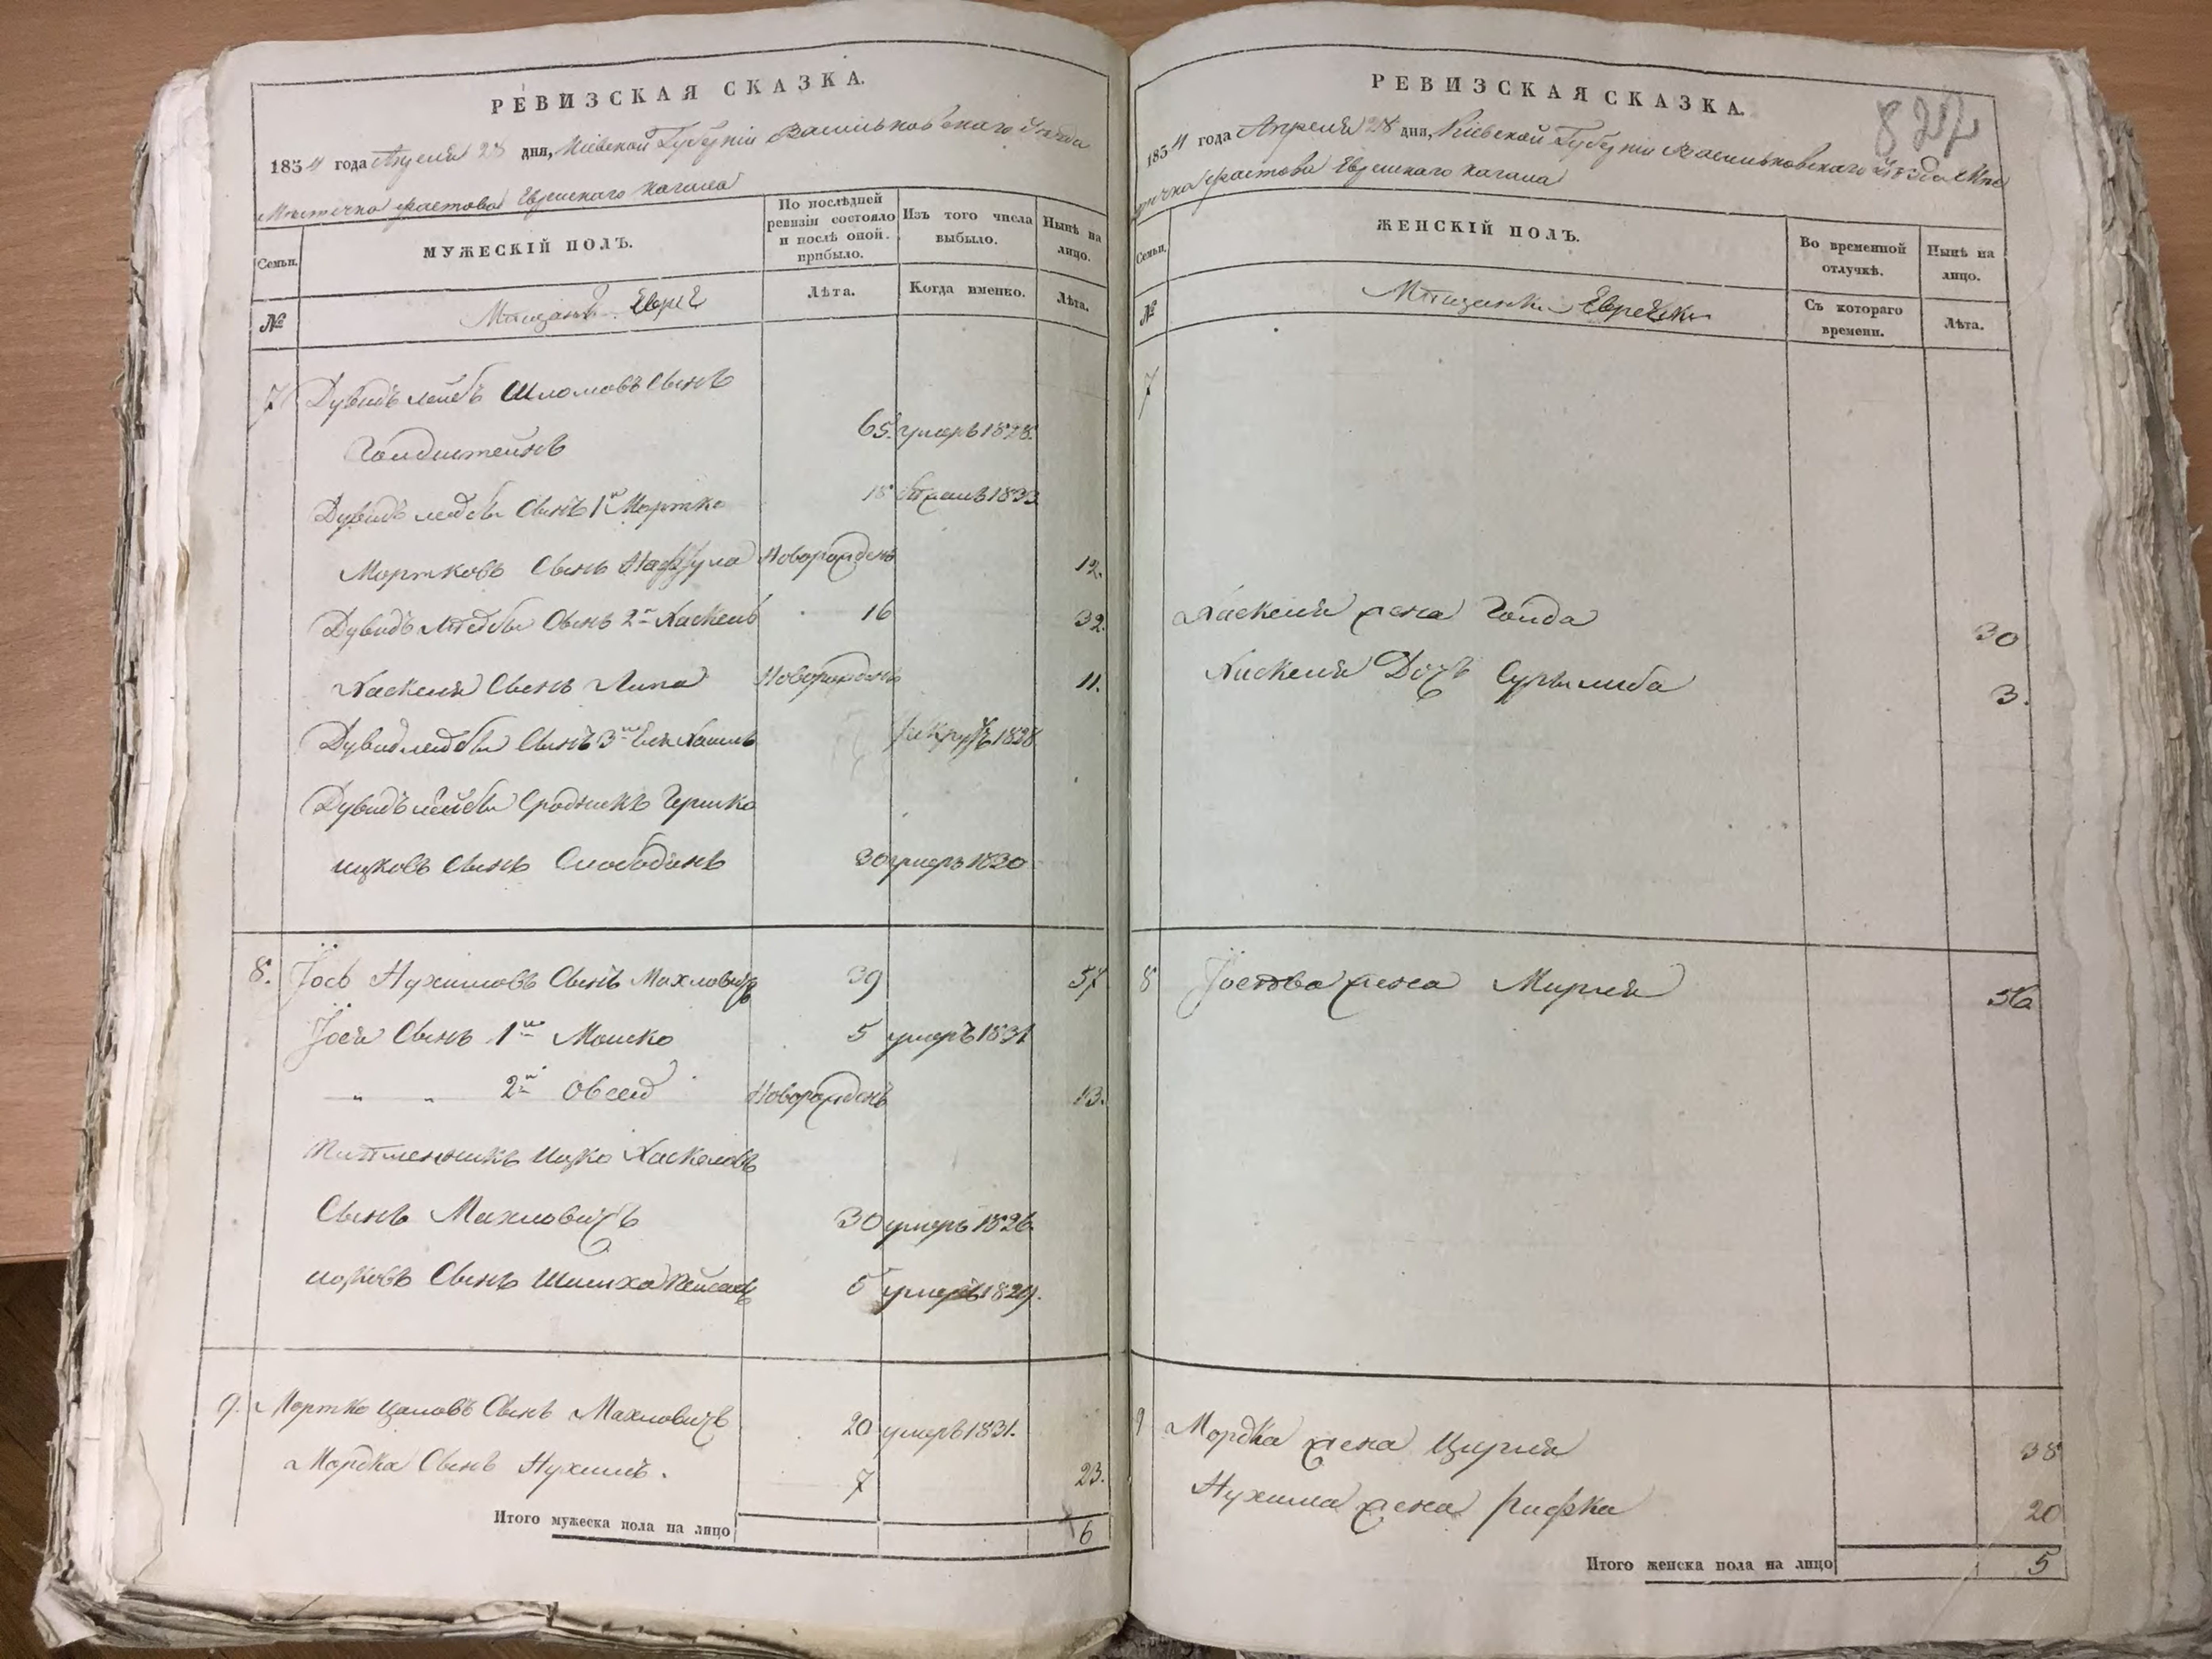 РЕВИЗСКАЯ СКАЗКА.
1834 года Апреля 28 дня, Кіевской Губерніи Васильковскаго Уѣзда
Мѣстечка Фастова Еврейскаго Кагала
Семьи.
МУЖЕСКІЙ ПОЛЪ.
По послѣдней ревизіи состояло и послѣ оной прибыло.
Изъ того числа выбыло.
Нынѣ на лицо.
№
Мѣщанѣ Евреи
Лѣта.
Когда именно.
Лѣта.
7 Дувидъ Лейбъ Шломовъ Сынъ
Голдштейнъ 65. умеръ 1828.
Дувидъ Лейбы Сынъ 1й Мортко 18 1833
Мортковъ Сынъ Новорожденъ 12.
Дувидъ Лейбы Сынъ 2й Хаскель 16 32.
Хаскеля Сынъ Липа Новорожденъ 11.
Дувидъ Лейбы Сынъ 3й рекрутъ 1828
Дувидъ Лейбы Сродникъ Гершко
Ицковъ Сынъ Слободянъ 30 умеръ 1830
8. Іось Нухимовъ Сынъ Махловичъ 39 57
Іося Сынъ 1й Мошко 5 умеръ 1831
" " 2й Овсей Новорожденъ 13.
Племенникъ Ицко Хаскелевъ
Сынъ Махловичъ 30 умеръ 1826.
Ицковъ Сынъ Шлиоха Пейсахъ 5 умеръ 1829.
9. Мортко Цаловъ Сынъ Махловичъ 20 умеръ 1831.
Мордка Сынъ Нухимъ. 7 23.
Итого мужеска пола на лицо 6
РЕВИЗСКАЯ СКАЗКА.
827
1834 года Апреля 28 дня, Кіевской Губерніи Васильковскаго Уѣзда Мѣс
течка Фастова Еврейскаго Кагала
Семьи.
ЖЕНСКІЙ ПОЛЪ.
Во временной отлучкѣ.
Нынѣ на лицо.
№
Мѣщанки Еврейки
Съ котораго времени.
Лѣта.
7
Хаскеля жена Голда 30
Хаскеля Дочь Сурълиба 3.
8 Іосева жена Мирля 56
9 Мордка жена Цирля 38
Нухима жена Рифка 20
Итого женска пола на лицо 5